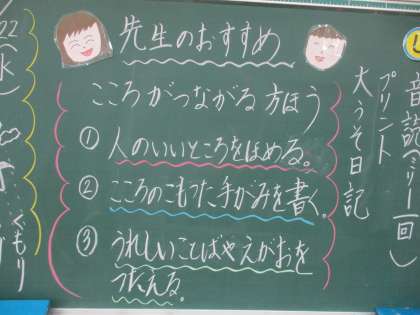 先生のおすすめ
こころがつながる方ほう
① 人のいいところをほめる。
② こころのこもった手がみを書く。
③ うれしいことばやえがおを
つたえる。
音読ベリー一回)
プリント
大うそ日記
22
(水)
くもり